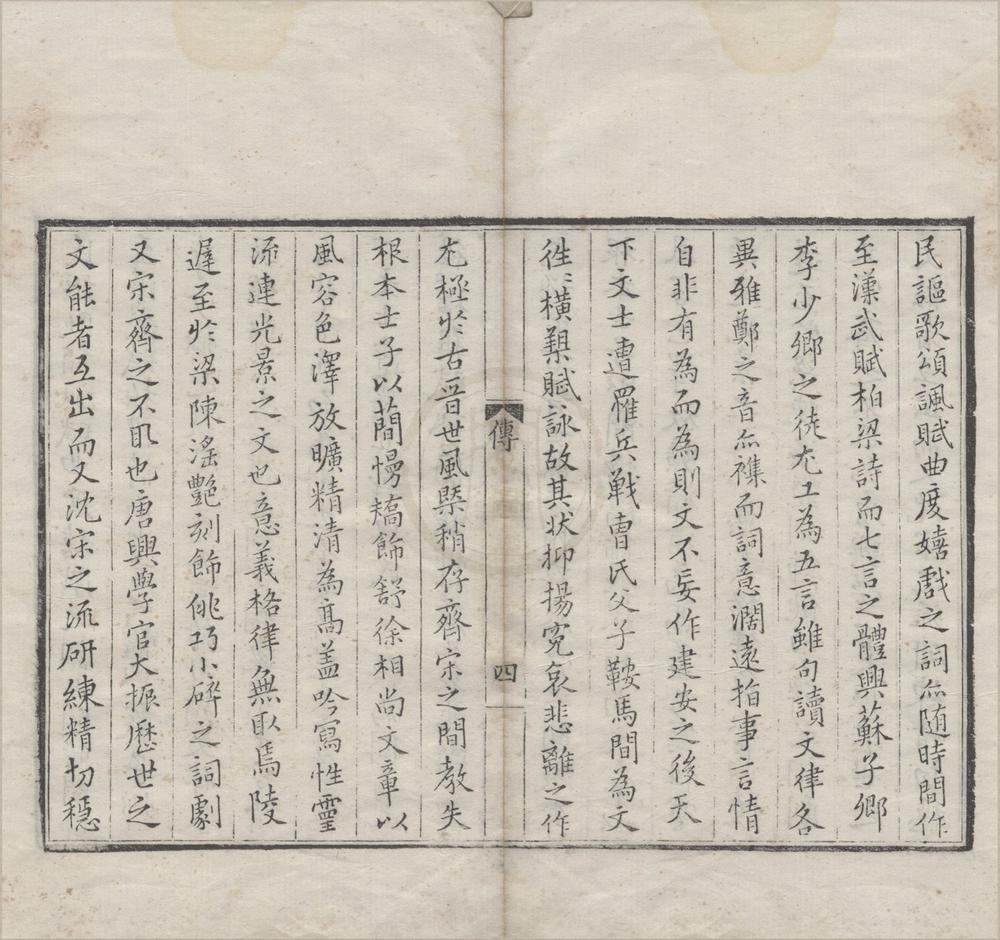 民謳歌頌諷賦曲度嬉戲之詞亦随時間作
至漢武賦柏梁詩而七言之體興蘇子卿
李少卿之徒尤工為五言雖句讀文律各
異雅鄭之音亦襍而詞意濶遠指事言情
自非有為而為則文不妄作建安之後天
下文士遭罹兵戰曺氏父子鞍馬間為文
徃〻橫槊賦詠故其状抑揚寃哀悲離之作
傳
四
尤極扵古晉世風槩稍存齊宋之間教失
根本士子以簡慢矯飾舒徐相尚文章以
風容色澤放曠精清為髙盖吟寫性靈
流連光景之文也意義格律無取焉陵
遲至扵梁陳滛艷刻飾佻巧小碎之詞劇
又宋齊之不取也唐興學官大振歷世之
文能者互出而又沈宋之流研練精切穩